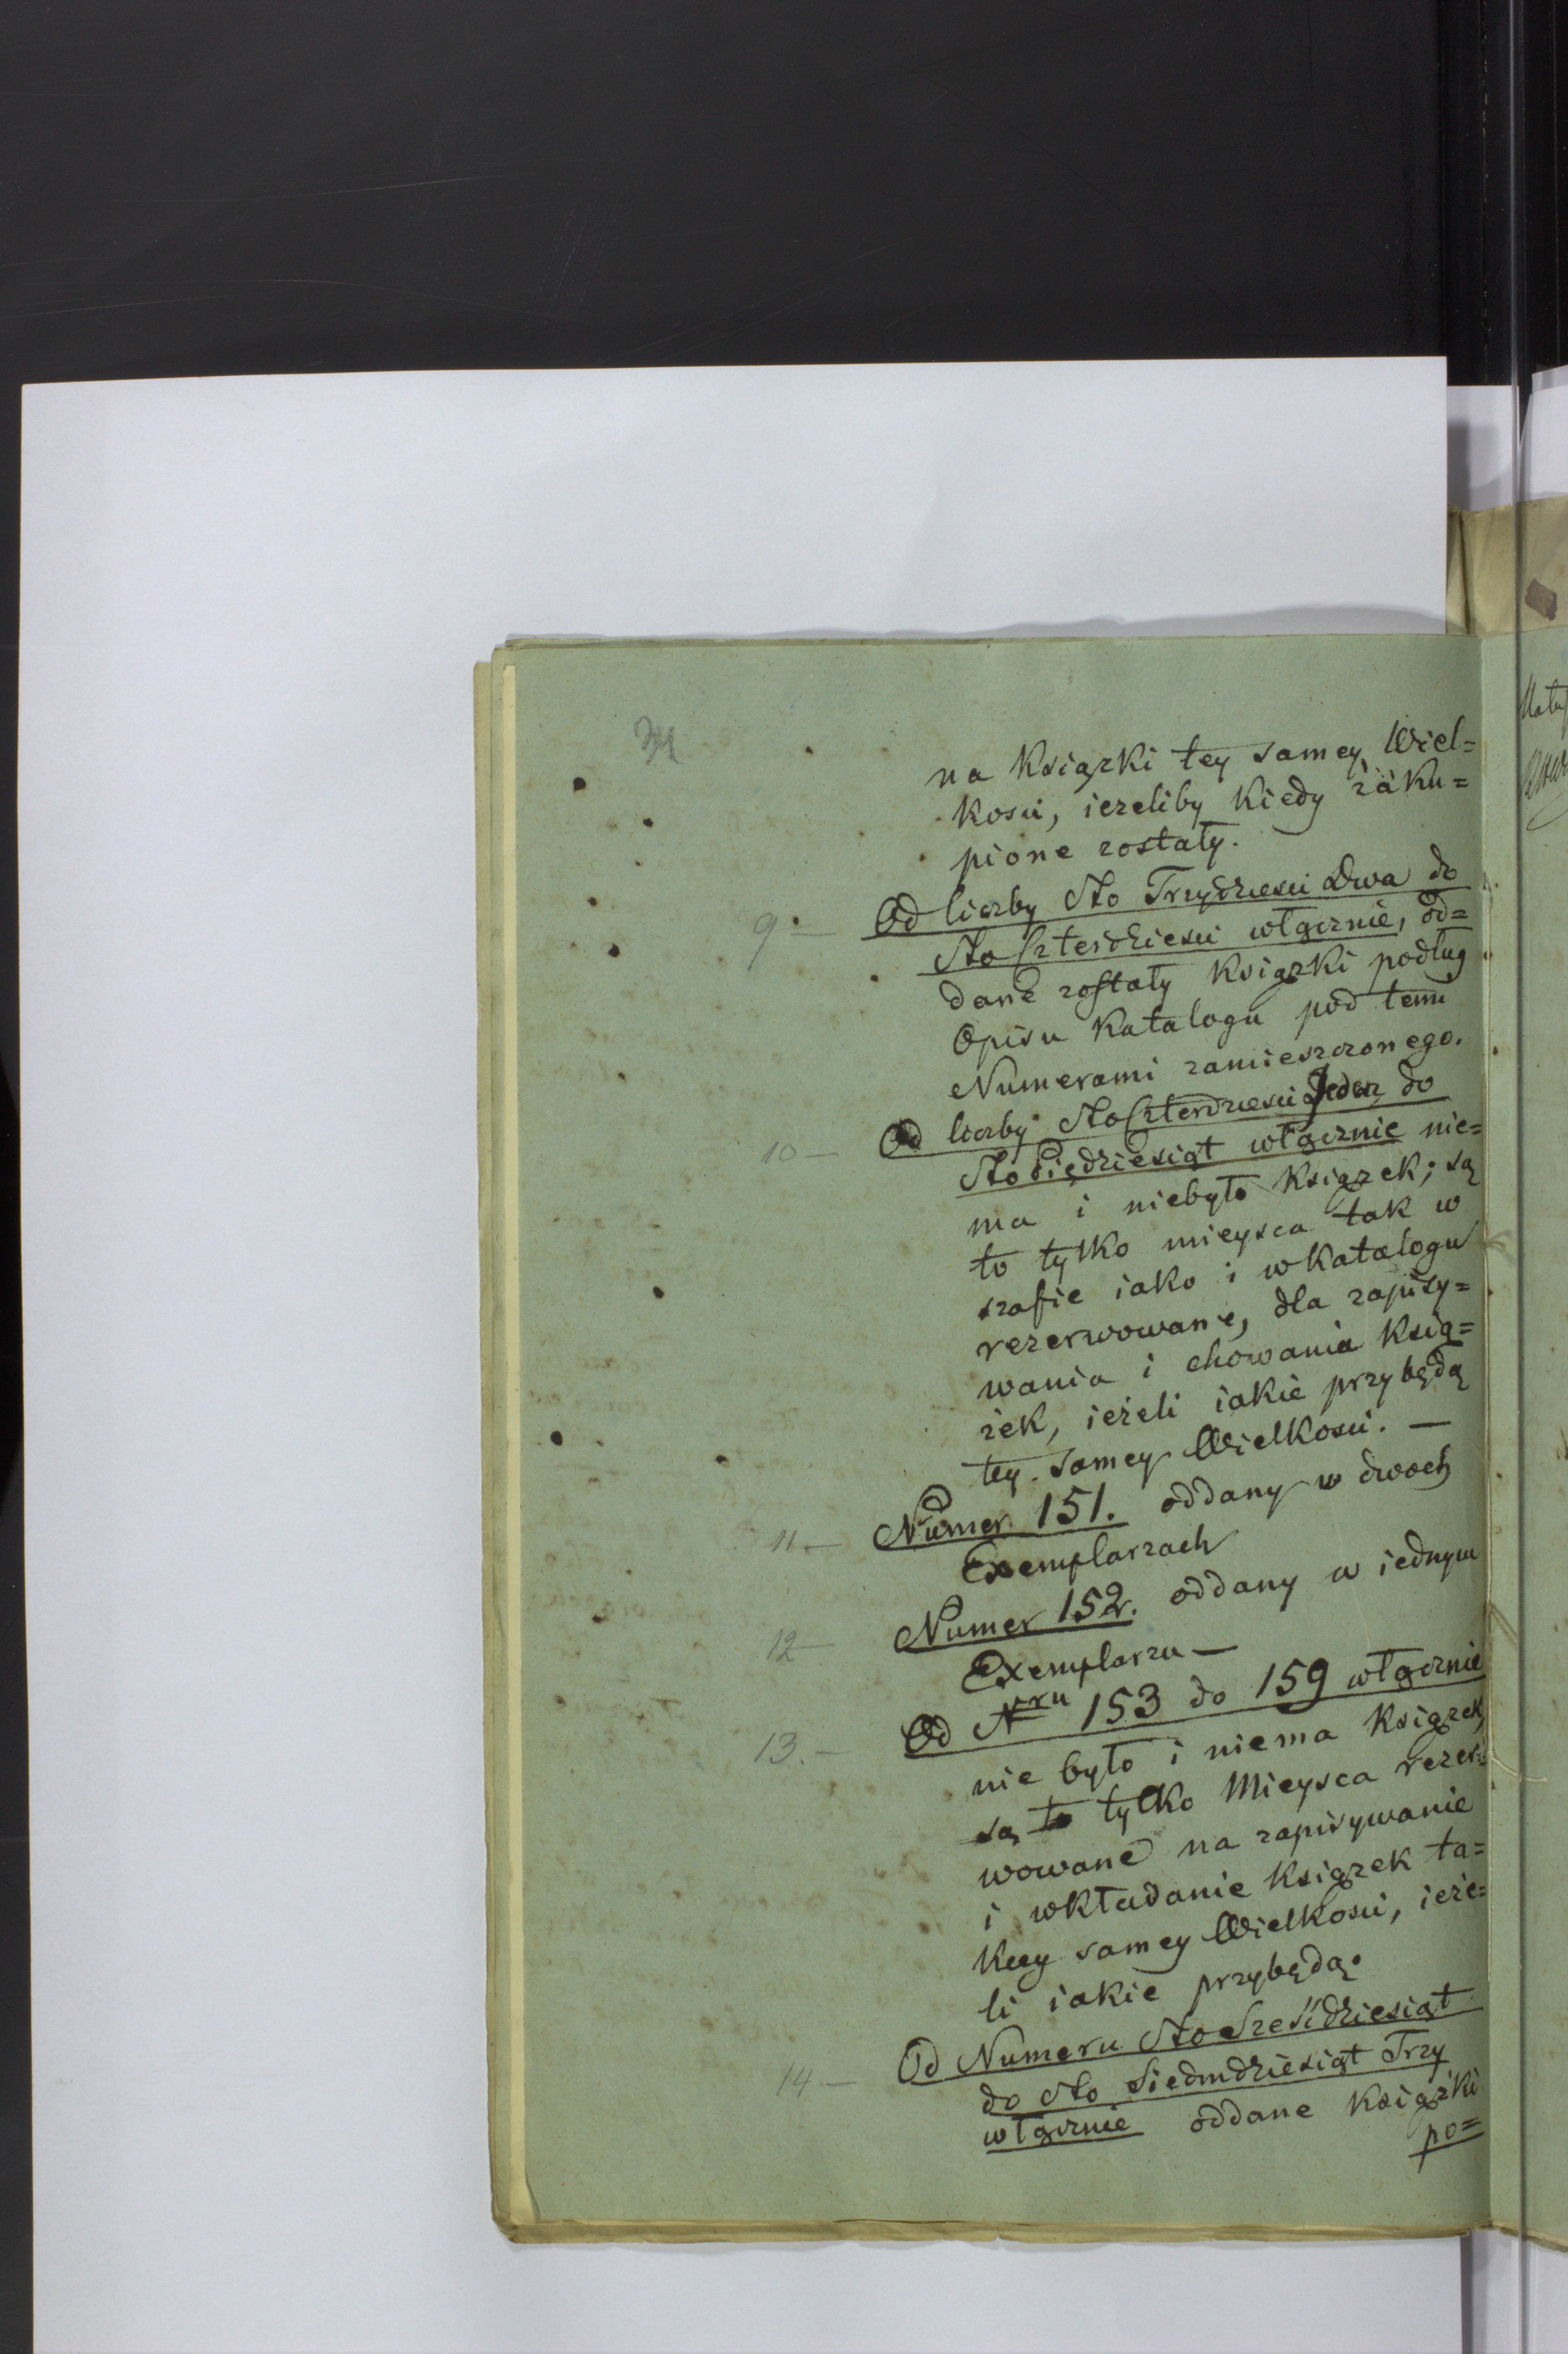 na Książki tey samey Wiel=
kości, ieżeliby kiedy zaku=
pione zostały.
9 — Od liczby Sto Trzydzieści Dwa do
Sto Czterdzieści włącznie, od=
dane zostały Książki podług
Opisu Katalogu pod temi
Numerami zamieszczonego.
10 — Od liczby Sto Czterdzieści Jeden do
Sto Piędziesiąt włącznie nie=
ma i niebyło Książek; są
to tylko mieysca tak w
szafie iako i w Katalogu
rezerwowane, dla zapisy=
wania i chowania Ksią=
żek, ieżeli iakie przybędą
tey samey Wielkości. —
11. — Numer 151. oddany w dwoch
Exemplarzach
12 — Numer 152. oddany w iednym
Exemplarzu —
13. — Od Nru 153 do 159 włącznie
nie było i niema Książek,
są to tylko Mieysca rezer=
wowane na zapisywanie
i wkładanie Książek ta=
kiey samey Wielkości, ieże=
li iakie przybędą.
14 — Od Numeru Sto Sześćdziesiąt
do Sto Siedmdziesiąt Trzy
włącznie oddane Książki
po=